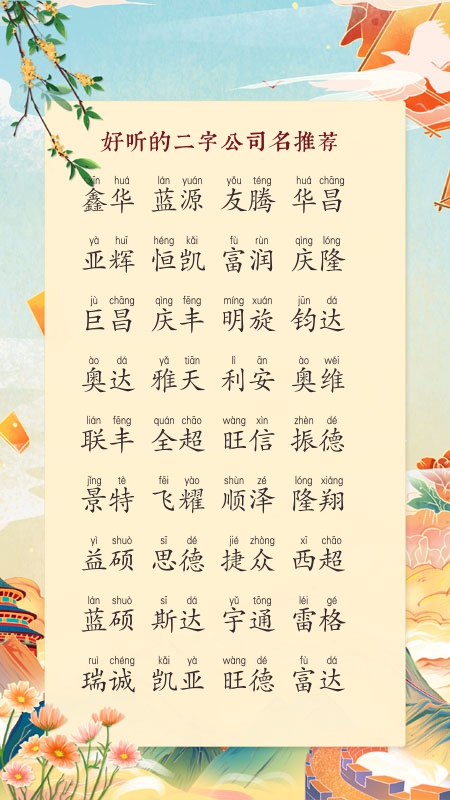 好听的二字公司名推荐
xīn huá lán yuán yǒu téng huá chāng
鑫华 蓝源 友腾 华昌
yà huī héng kǎi fù rùn qìng lóng
亚辉 恒凯 富润 庆隆
jù chāng qìng fēng míng xuán jūn dá
巨昌 庆丰 明旋 钧达
ào dá yǎ tiān lì ān ào wéi
奥达 雅天 利安 奥维
lián fēng quán chāo wàng xìn zhèn dé
联丰 全超 旺信 振德
jǐng tè fēi yào shùn zé lóng xiáng
景特 飞耀 顺泽 隆翔
yì shuò sī dé jié zhòng xī chāo
益硕 思德 捷众 西超
lán shuò sī dá yǔ tōng léi gé
蓝硕 斯达 宇通 雷格
ruì chéng kǎi yà wàng dé fù dá
瑞诚 凯亚 旺德 富达